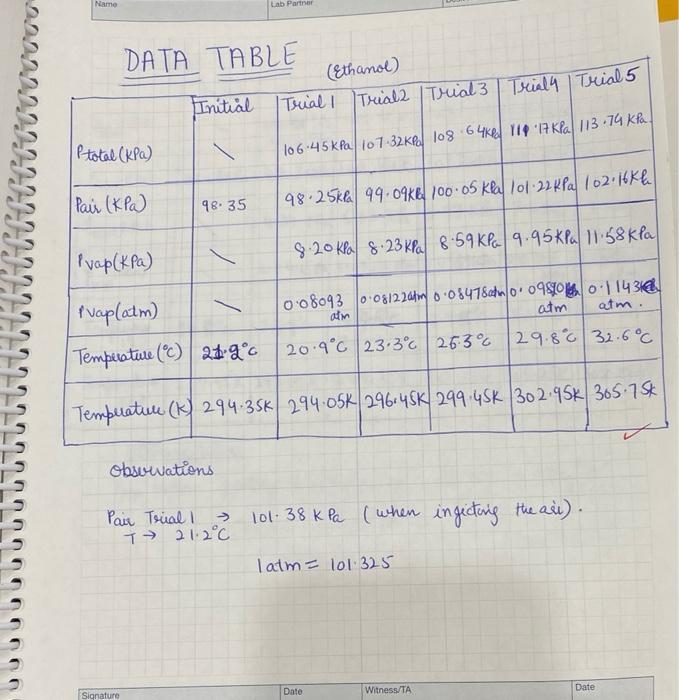 Name Lab Partner
DATA TABLE (Ethanol)
Initial Trial 1 Trial2 Trial3 Trial4 Trial 5
Ptotal (KPa) \ 106.45 KPa 107.32KPa 108.64KPa 110.17KPa 113.74 KPa
Pair (KPa) 98.35 98.25KPa 99.09KPa 100.05 KPa 101.22KPa 102.16KPa
Pvap(KPa) \ 8.20 KPa 8.23KPa 8.59KPa 9.95KPa 11.58KPa
Pvap(atm) \ 0.08093 atm 0.08122atm 0.08478atm 0.0980 atm 0.1143 atm.
Temperature (°C) 21.2°C 20.9°C 23.3°C 26.3°C 29.8°C 32.6°C
Temperature (K) 294.35K 294.05K 296.45K 299.45K 302.95K 305.75K
Observations
Pair Trial 1 → 101.38 KPa (when injecting the air).
T → 21.2°C
1atm = 101.325
Signature Date Witness/TA Date